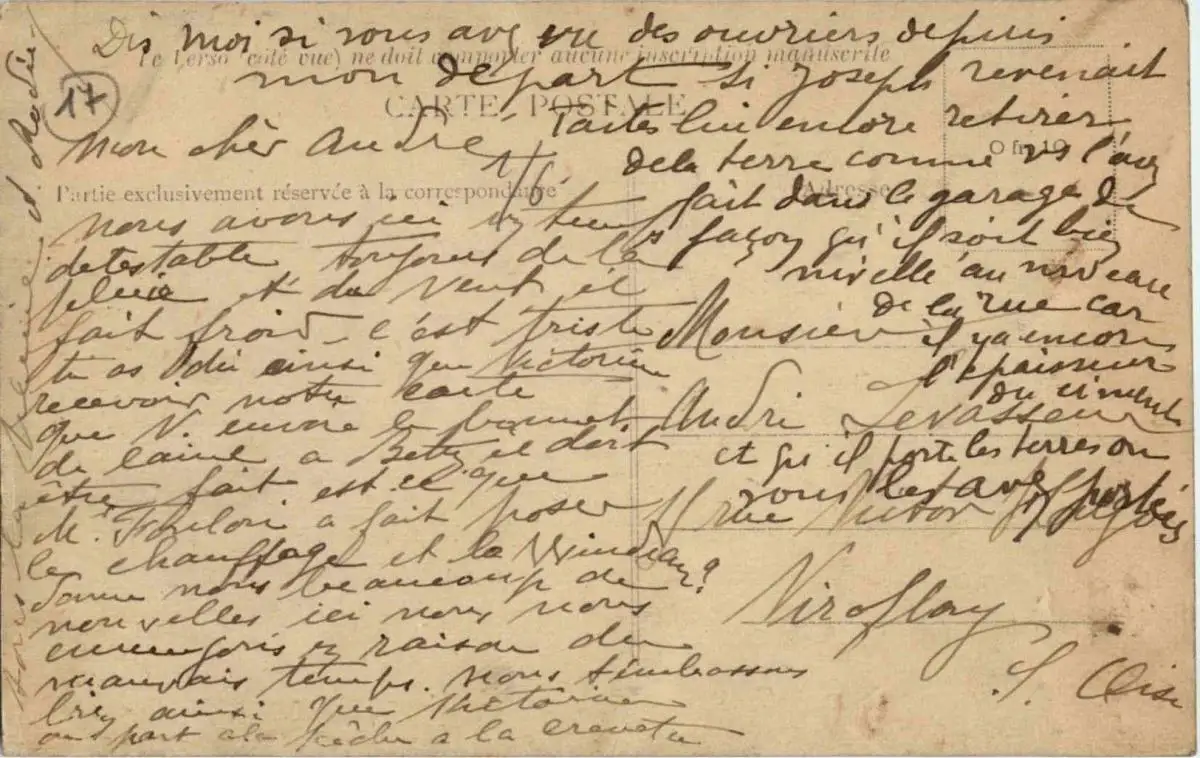 Dis moi si vous avez vu des ouvriers depuis
mon départ si Joseph revenait
faites lui encore retirer
de la terre comme vs l'avez
fait dans le garage de
façon qu'il soit bien
nivellé au niveau
de la rue car
il y a encore
l'épaisseur
du ciment
et qu'il porte les terres ou
vous les avez portées
17
le verso (côté vue) ne doit comporter aucune inscription manuscrite
CARTE POSTALE
Partie exclusivement réservée à la correspondance
Adresse
0 fr. 10
Mon cher André
1/6
nous avons ici un temps
détestable toujours de la
pluie et du vent il
fait froid c'est triste
tu as dû ainsi que Victorine
recevoir notre carte
que V. envoie le bonnet
de laine a Betty il doit
être fait est-ce que
Mr Foulon a fait poser
le chauffage et le
Donne nous beaucoup de
nouvelles ici nous nous
ennuyons en raison du
mauvais temps. nous t'embrassons
bien ainsi que Victorine
on part à la pêche a la crevette
Monsieur
André Levasseur
rue Victor Hugo
Viroflay
S. Oise